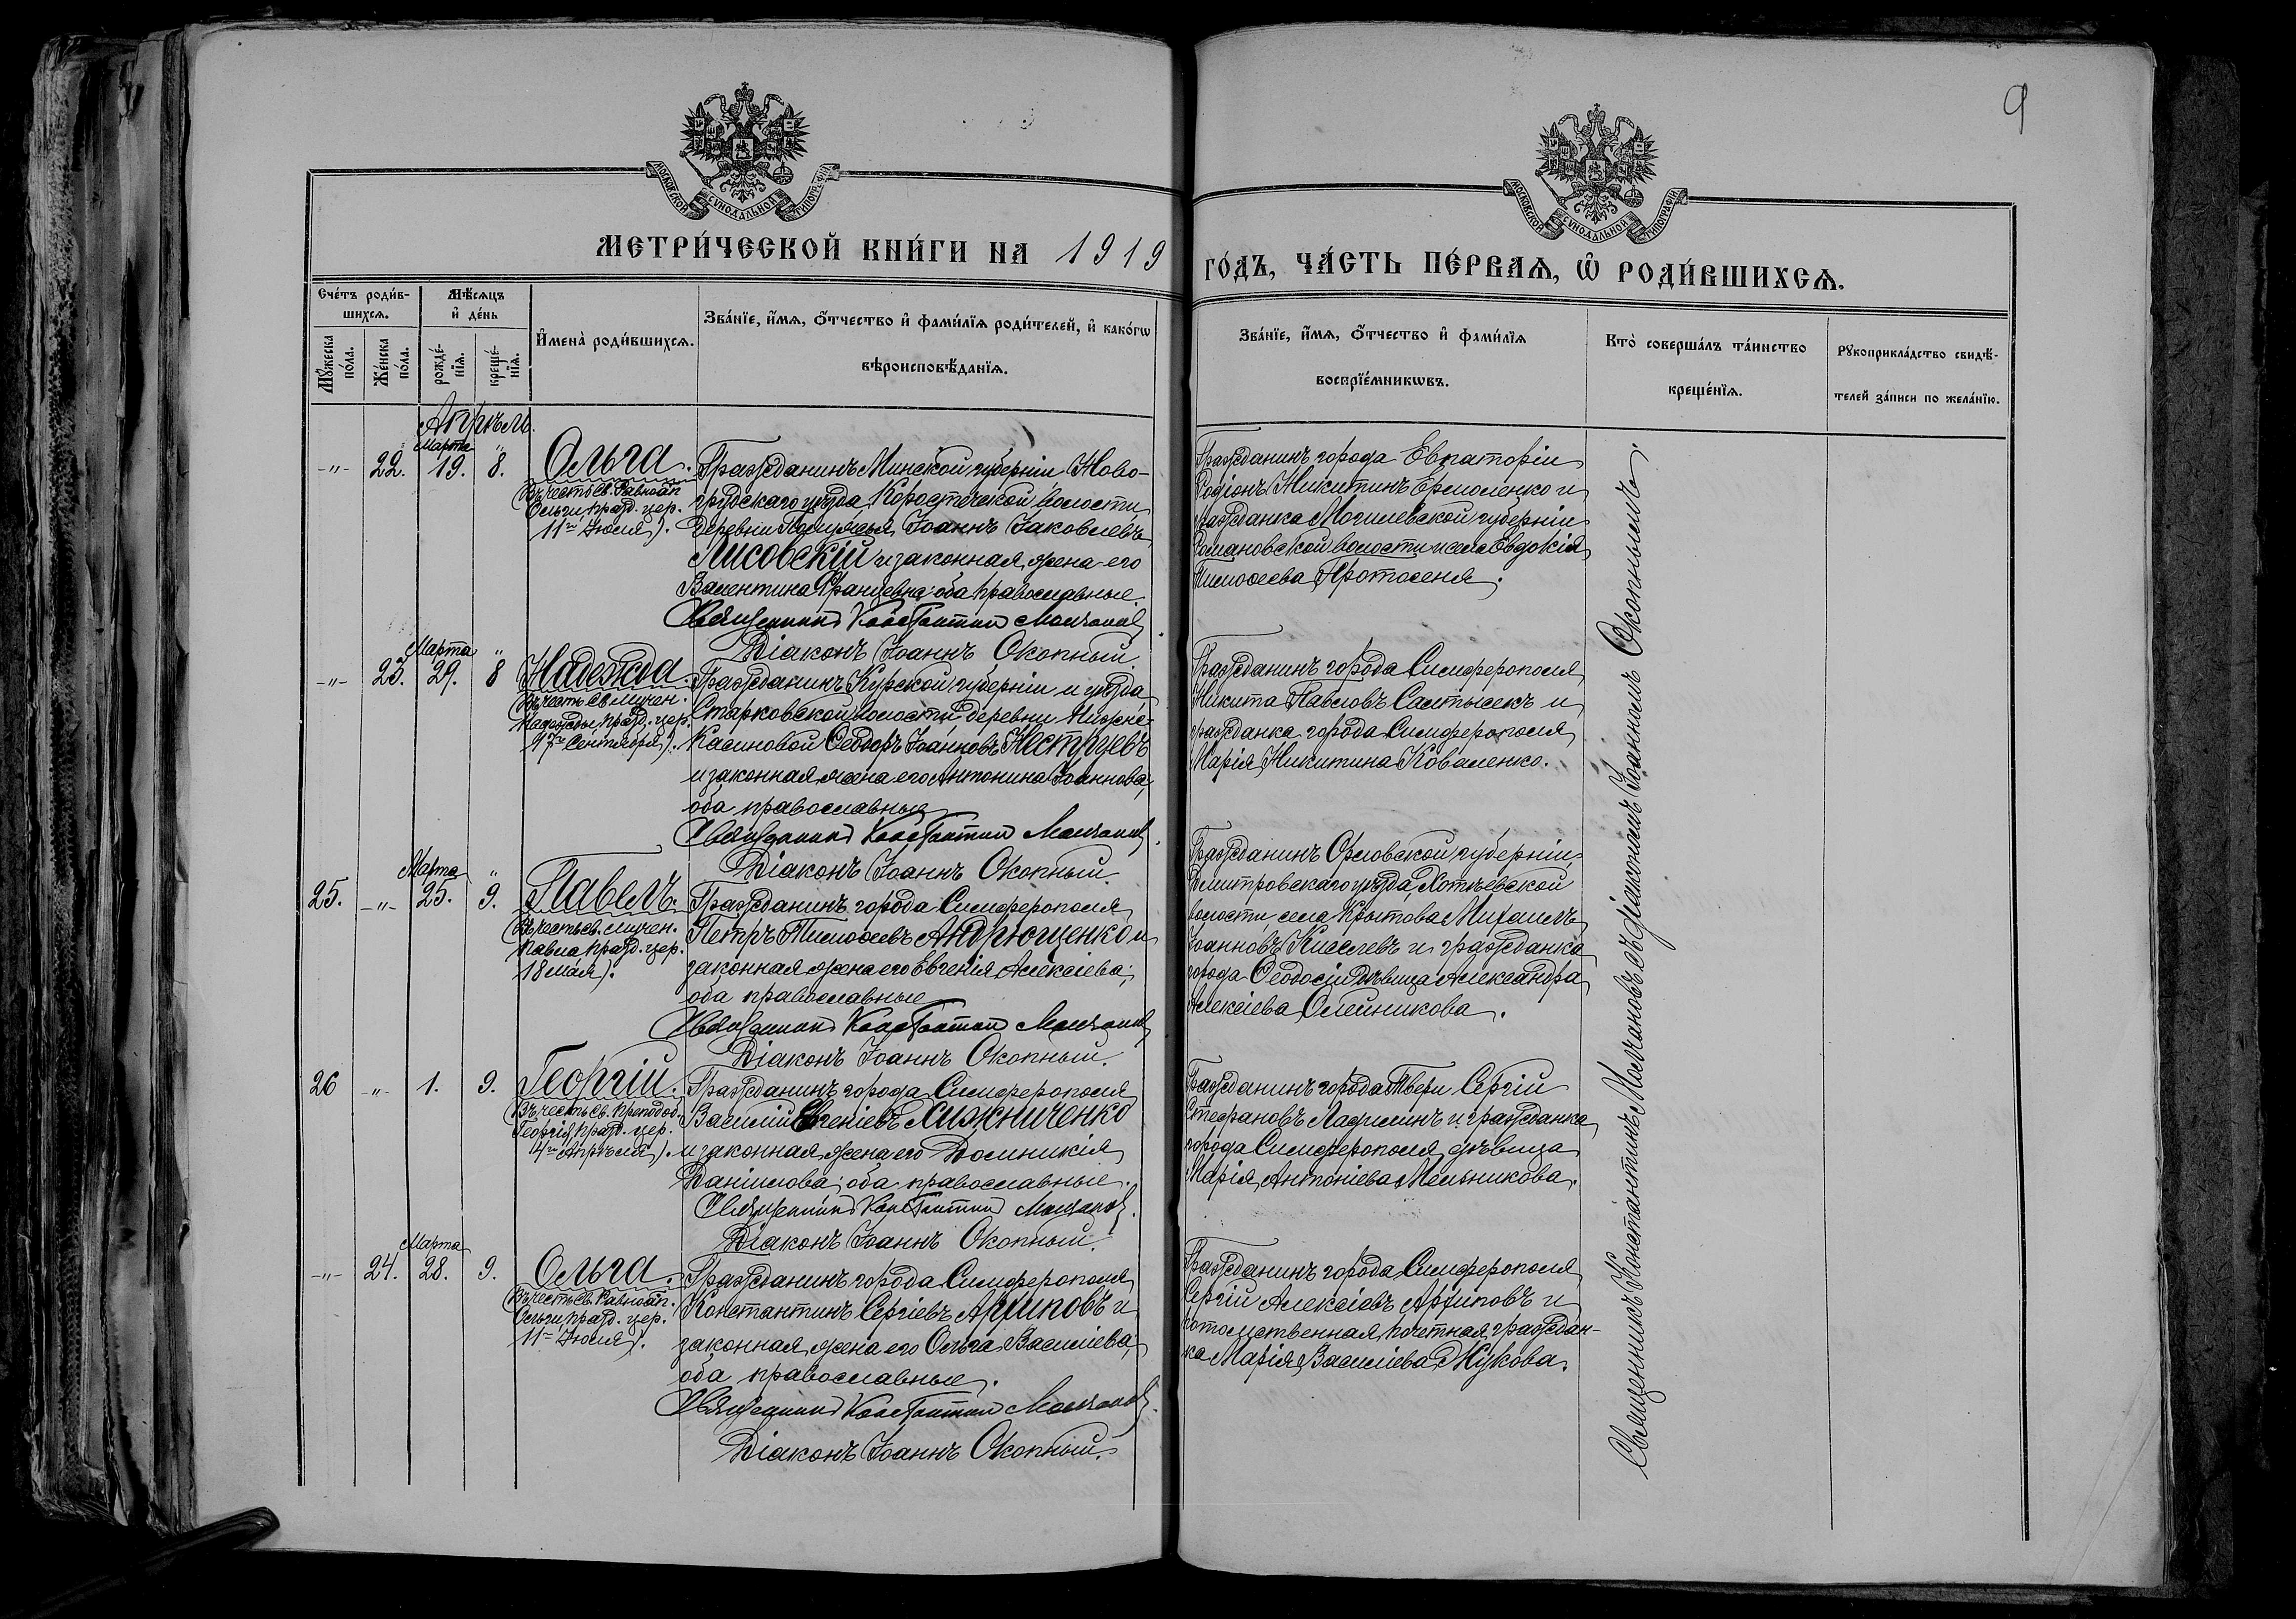 9
МОСКОВСКОЙ СѴНОДАЛЬНОЙ ТИПОГРАФІИ
МОСКОВСКОЙ СѴНОДАЛЬНОЙ ТИПОГРАФІИ
МЕТРИ́ЧЕСКОЙ КНИ́ГИ НА 1919
ГО́ДЪ, ЧА́СТЬ ПЕ́РВАѦ, Ѡ҆ РОДИ́ВШИХСѦ.
Сче́тъ роди́в-
шихсѧ.
Мꙋ́жеска по́ла.
Же́нска по́ла.
Мѣ́сѧцъ
и҆ де́нь
рожде́-нїѧ.
креще́-нїѧ.
И҆мена̀ роди́вшихсѧ.
Зва́нїе, и҆́мѧ, о҆́тчество и҆ фами́лїѧ роди́телей, и҆ како́гѡ
вѣроисповѣ́данїѧ.
Зва́нїе, и҆́мѧ, о҆́тчество и҆ фами́лїѧ
воспрїе́мникѡвъ.
Кто̀ соверша́лъ та́инство
креще́нїѧ.
Рꙋкоприкла́дство свидѣ́-
телей за́писи по жела́нїю.
Апрѣль.
Марта "
-"- 22. 19. 8. Ольга.
(Въ честь св. Равноап.
Ольги, празд. цер.
11го Іюля).
Гражданинъ Минской губерніи Ново-
грудскаго уѣзда, волости,
деревни Іоаннъ Іаковлевъ
Лисовскій и законная жена его
Валентина Францевна; оба православные.
Священникъ Константинъ Молчановъ.
Діаконъ Іоаннъ Окопный.
Гражданинъ города Евпаторіи
Родіонъ Никитинъ Ермоленко и
гражданка Могилевской губерніи
Романовской волости и села Евдокія
Тимоѳеева Протосеня.
Марта "
-"- 23. 29. 8 Надежда.
(Въ честь св. мучен.
Надежды, празд. цер.
17го Сентября).
Гражданинъ Курской губерніи и уѣзда
Старковской волости деревни Нижне-
Калиновой Ѳеодоръ Іоанновъ Нестругевъ
и законная жена его Антонина Іоаннова;
оба православные
Священникъ Константинъ Молчановъ.
Діаконъ Іоаннъ Окопный.
Гражданинъ города Симферополя
Никита Павловъ Салтысекъ и
гражданка города Симферополя
Марія Никитина Коваленко.
Марта "
25. -"- 25. 9. Павелъ.
(Въ честь св. мучен.
Павла празд. цер.
18 мая).
Гражданинъ города Симферополя
Петръ Тимоѳеевъ Андрющенко и
законная жена его Евгенія Алексіева;
оба православные
Священникъ Константинъ Молчановъ
Діаконъ Іоаннъ Окопный.
Гражданинъ Орловской губерніи,
Дмитровскаго уѣзда, Хотѣевской
волости, села Крытова Михаилъ
Іоанновъ Киселевъ и гражданка
города Ѳеодосіи дѣвица Александра
Алексіева Олейникова.
26 -"- 1. 9. Георгій.
(Въ честь св. преподоб.
Георгія, празд. цер.
4го Апрѣля).
Гражданинъ города Симферополя
Василій Евгеніевъ Сижниченко
и законная жена его Домникія
Даніилова; оба православные.
Священникъ Константинъ Молчановъ.
Діаконъ Іоаннъ Окопный.
Гражданинъ города Твери Сергій
Стефановъ Ладилинъ и гражданка
города Симферополя дѣвица
Марія Антоніева Мельникова.
Марта
-"- 24. 28. 9. Ольга.
(Въ честь св. Равноап.
Ольги, празд. цер.
11го Іюля).
Гражданинъ города Симферополя
Константинъ Сергіевъ Архиповъ и
законная жена его Ольга Василіева;
оба православные.
Священникъ Константинъ Молчановъ.
Діаконъ Іоаннъ Окопный.
Гражданинъ города Симферополя
Сергій Алексіевъ Архиповъ и
потомственная почетная граждан-
ка Марія Василіева Жукова.
Священникъ Константинъ Молчановъ съ діакономъ Іоанномъ Окопнымъ.